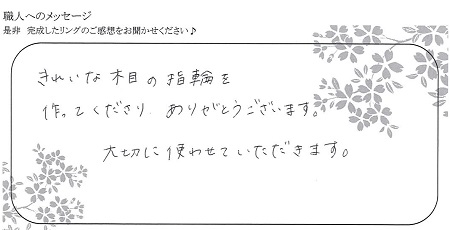 職人へのメッセージ
是非 完成したリングのご感想をお聞かせください♪
きれいな木目の指輪を
作ってくださり ありがとうございます。
大切に使わせていただきます。